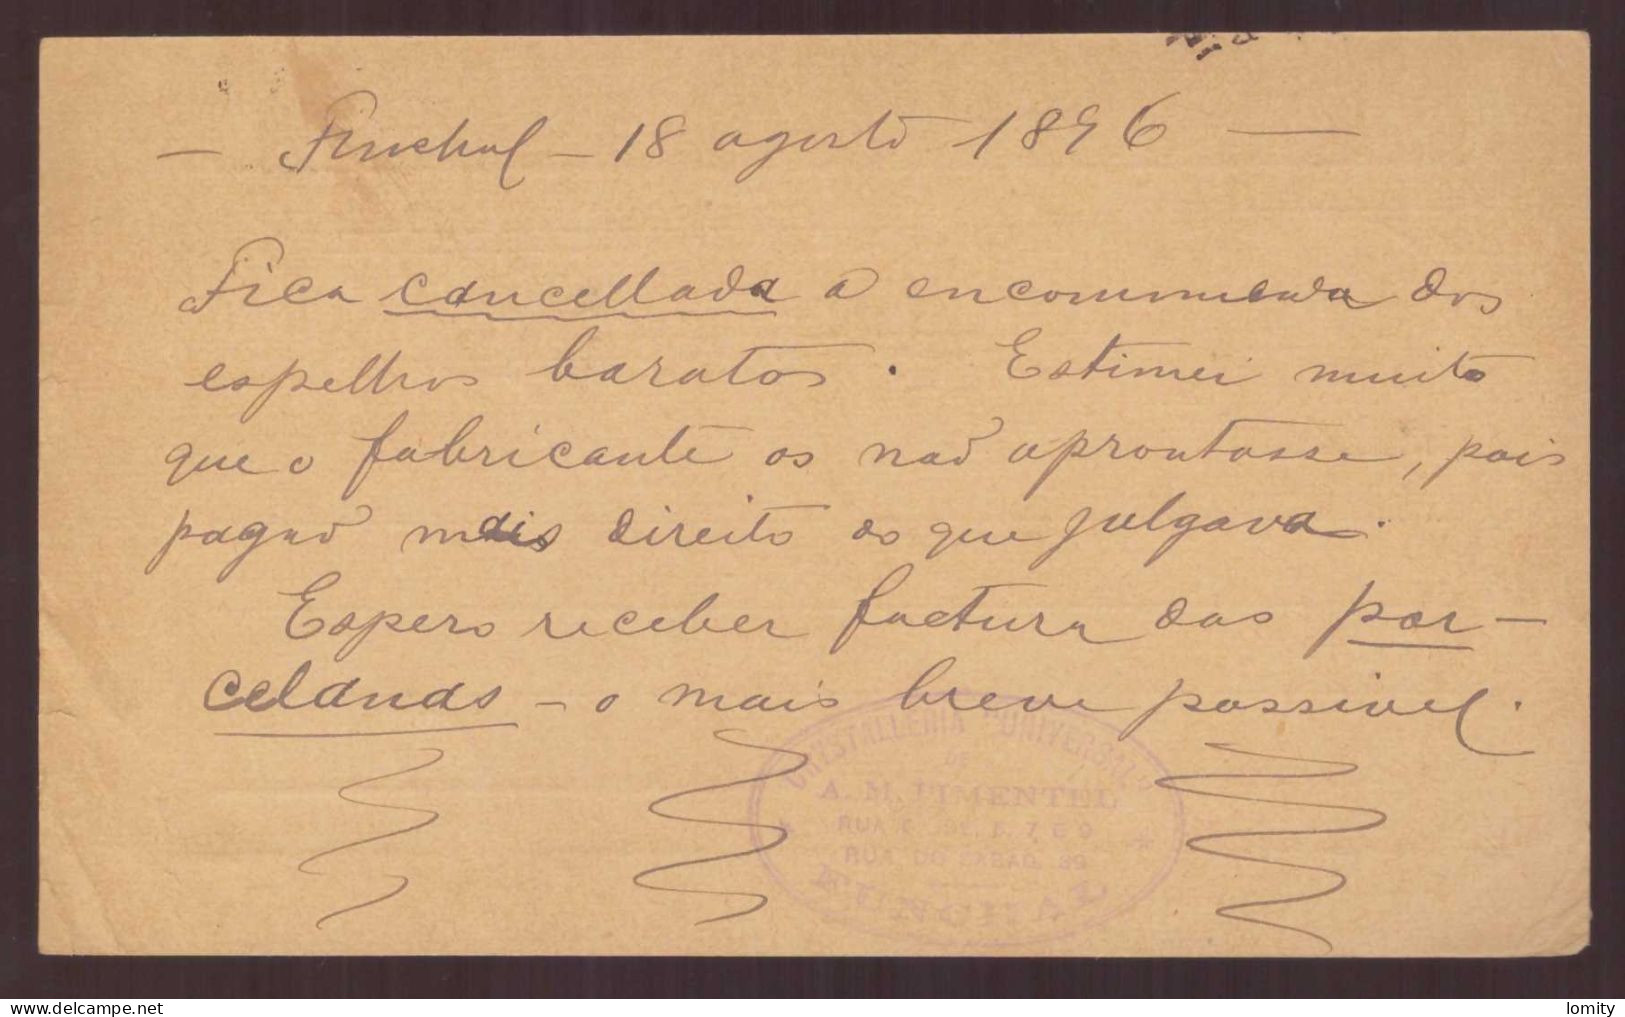 — Funchal — 18 agosto 1896 —
Fica cancellada a encommenda dos
espelhos baratos. Estimei muito
que o fabricante os não aprontasse, pois
pagão mais direito do que julgava.
Espero receber factura das por-
celanas — o mais breve possivel.
CRISTALLERIA "UNIVERSAL"
DE
A. M. PIMENTEL
RUA 5, 7 E 9
RUA DO 39
FUNCHAL
lomity.com